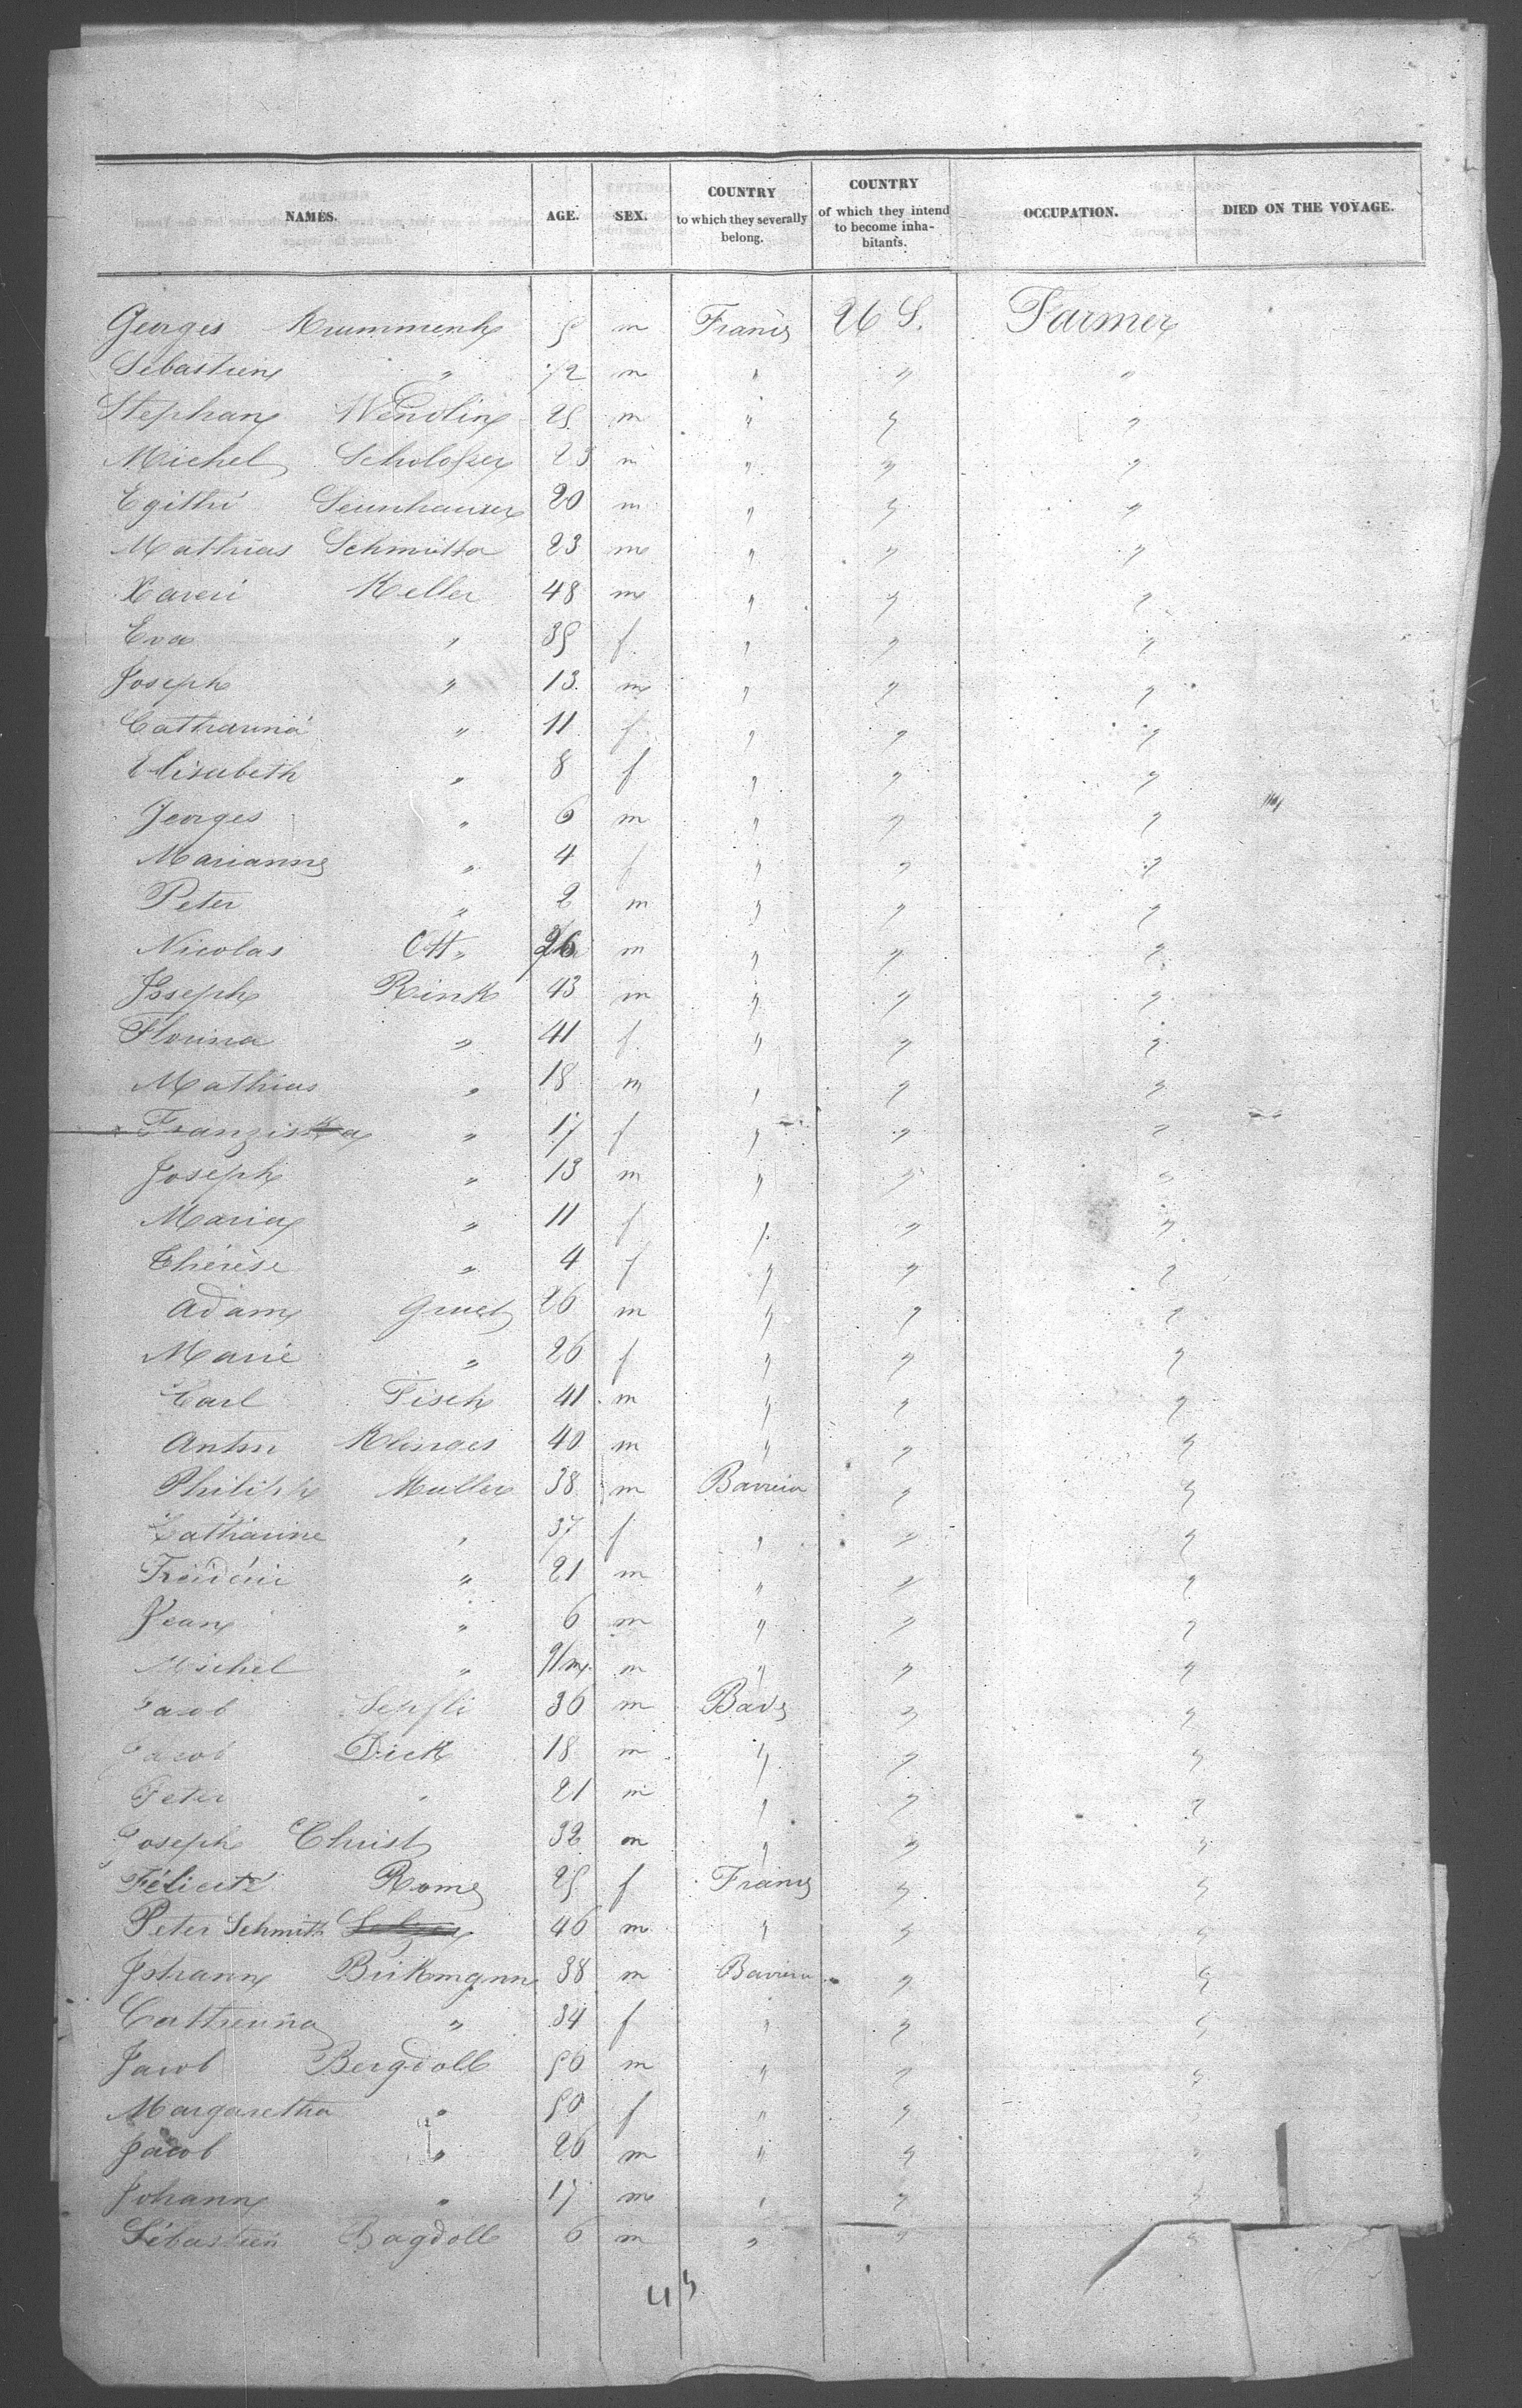 NAMES. AGE. SEX. COUNTRY to which they severally belong. COUNTRY of which they intend to become inhabitants. OCCUPATION. DIED ON THE VOYAGE.
Georges m France U S. Farmer
Sébastien " m " " "
Stephan Wendling 25 m " " "
Michel 23 m " " "
20 m " " "
Mathias 23 m " " "
Xaveri Keller 48 m " " "
Eva " 35 f " " "
Joseph " 13 m " " "
Catharina " 11 f " " "
Elisabeth " 8 f " " "
Georges " 6 m " " "
Marianne " 4 f " " "
Peter " 2 m " " "
Nicolas Ott 26 m " " "
Joseph Rink 43 m " " "
Florina " 41 f " " "
Mathias " 18 m " " "
Franziska " 17 f " " "
Joseph " 13 m " " "
Maria " 11 f " " "
Thérèse " 4 f " " "
Adam 26 m " " "
Marie " 26 f " " "
Carl Fisch 41 m " " "
Anton 40 m " " "
Philipp Muller 38 m Bavaria " "
Catharine " 37 f " " "
21 m " " "
Jean " 6 m " " "
Michel " 9/m m " " "
Jacob 36 m Bade " "
Jacob Dick 18 m " " "
Peter " 21 m " " "
Joseph Christ 32 m " " "
Félicité Rome 25 f France " "
Peter Schmitt 46 m " " "
Johann Brikmann 38 m Bavaria " "
Catherina " 34 f " " "
Jacob Bergdoll 56 m " " "
Margaretha " 50 f " " "
Jacob " 26 m " " "
Johann " 17 m " " "
Sébastien Bagdoll 6 m " " "